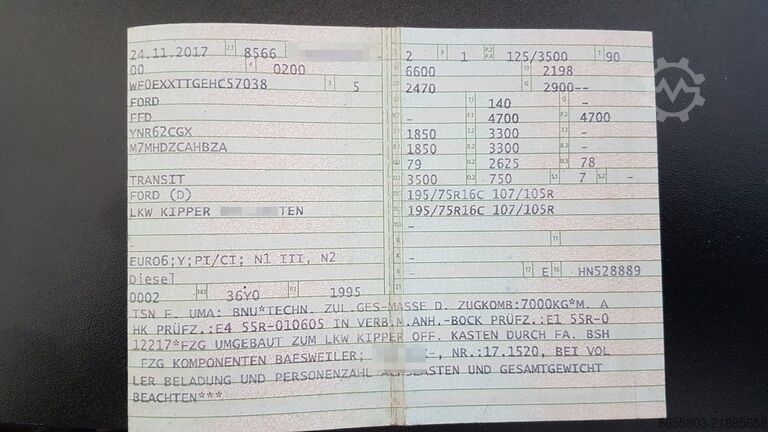 24.11.2017 2.1 8566
00 4 0200
WF0EXXTTGEHC57038 3 5
FORD
FFD
YNR62CGX
M7MHDZCAHBZA
TRANSIT
FORD (D)
LKW KIPPER TEN
EURO6;Y;PI/CT; N1 III, N2
Diesel
0002 14.1 36Y0 P.1 1995
2 9 1 P.2 P.4 125/3500 T 90
6600 19 2198
2470 G 2900--
- 13 140 Q -
- F.1 4700 F.2 4700
1850 7.2 3300 -
1850 8.2 3300 -
79 U.2 2625 U.3 78
3500 O.2 750 S.1 7 S.2 -
195/75R16C 107/105R
195/75R16C 107/105R
-
- 11
-
- 17 E 16 HN528889
21
TSN F. UMA: BNU*TECHN. ZUL.GES-MASSE D. ZUGKOMB:7000KG*M. A
HK PRÜFZ.:E4 55R-010605 IN VERB.M.ANH.-BOCK PRÜFZ.:E1 55R-0
12217*FZG UMGEBAUT ZUM LKW KIPPER OFF. KASTEN DURCH FA. BSH
FZG KOMPONENTEN BAESWEILER; -, NR.:17.1520, BEI VOL
LER BELADUNG UND PERSONENZAHL ACHSLASTEN UND GESAMTGEWICHT
BEACHTEN***
8655803-21895658